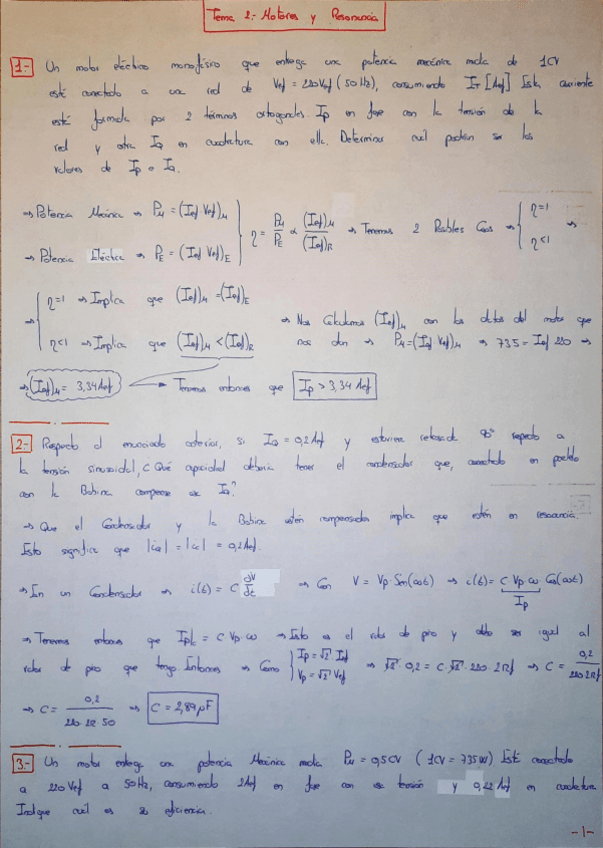 Tema 2.- Motores y Resonancia
1.- Un motor eléctrico monofásico que entrega una potencia mecánica media de 1CV
está conectado a una red de Vef = 220Vef (50Hz), consumiendo IT [Aef] Esta corriente
está formada por 2 términos ortogonales. Ip en fase con la tensión de la
red y otra IQ en cuadratura con ella. Determinar cuál podrían ser los
valores de Ip e IQ.
⇒ Potencia Mecánica ⇒ PM = (Ief Vef)M
⇒ Potencia Eléctrica ⇒ PE = (Ief Vef)E
η = PM/PE α (Ief)M/(Ief)R ⇒ Tenemos 2 Posibles Casos ⇒ { η=1 η<1 ⇒
⇒ { η=1 ⇒ Implica que (Ief)M = (Ief)E
η<1 ⇒ Implica que (Ief)M < (Ief)R
⇒ Nos Calculamos (Ief)M con los datos del motor que
nos dan ⇒ PM = (Ief Vef)M ⇒ 735 = Ief 220 ⇒
⇒ (Ief)M = 3,34 Aef Tenemos entonces que Ip > 3,34 Aef
2.- Respecto al enunciado anterior, si IQ = 0,2 Aef y estuviera retrasada 90° respecto a
la tensión sinusoidal, ¿Qué capacidad debería tener el condensador que, conectado en paralelo
con la Bobina compense esa IQ?
⇒ Que el Condensador y la Bobina estén compensados implica que estén en resonancia
Esto significa que |iQ| = |ic| = 0,2 Aef.
⇒ En un Condensador ⇒ i(t) = C dV/dt ⇒ Con V = Vp Sen(ωt) ⇒ i(t) = C Vp ω Cos(ωt)
Ip
⇒ Tenemos entonces que Ip|c = C Vp ω ⇒ Esto es el valor de pico y debe ser igual al
valor de pico que tenga Entonces ⇒ Como { Ip = √2 Ief Vp = √2 Vef ⇒ √2 0,2 = C √2 220 2πf ⇒ C = 0,2/220 2πf
⇒ C = 0,2/220 2π 50 ⇒ C = 2,89 μF
3.- Un motor entrega una potencia Mecánica media PM = 0,5CV (1CV = 735W) Está conectado
a 220 Vef a 50Hz, consumiendo 2Aef en fase con esa tensión y 0,22 Aef en cuadratura
Indique cuál es su eficiencia.
-1-